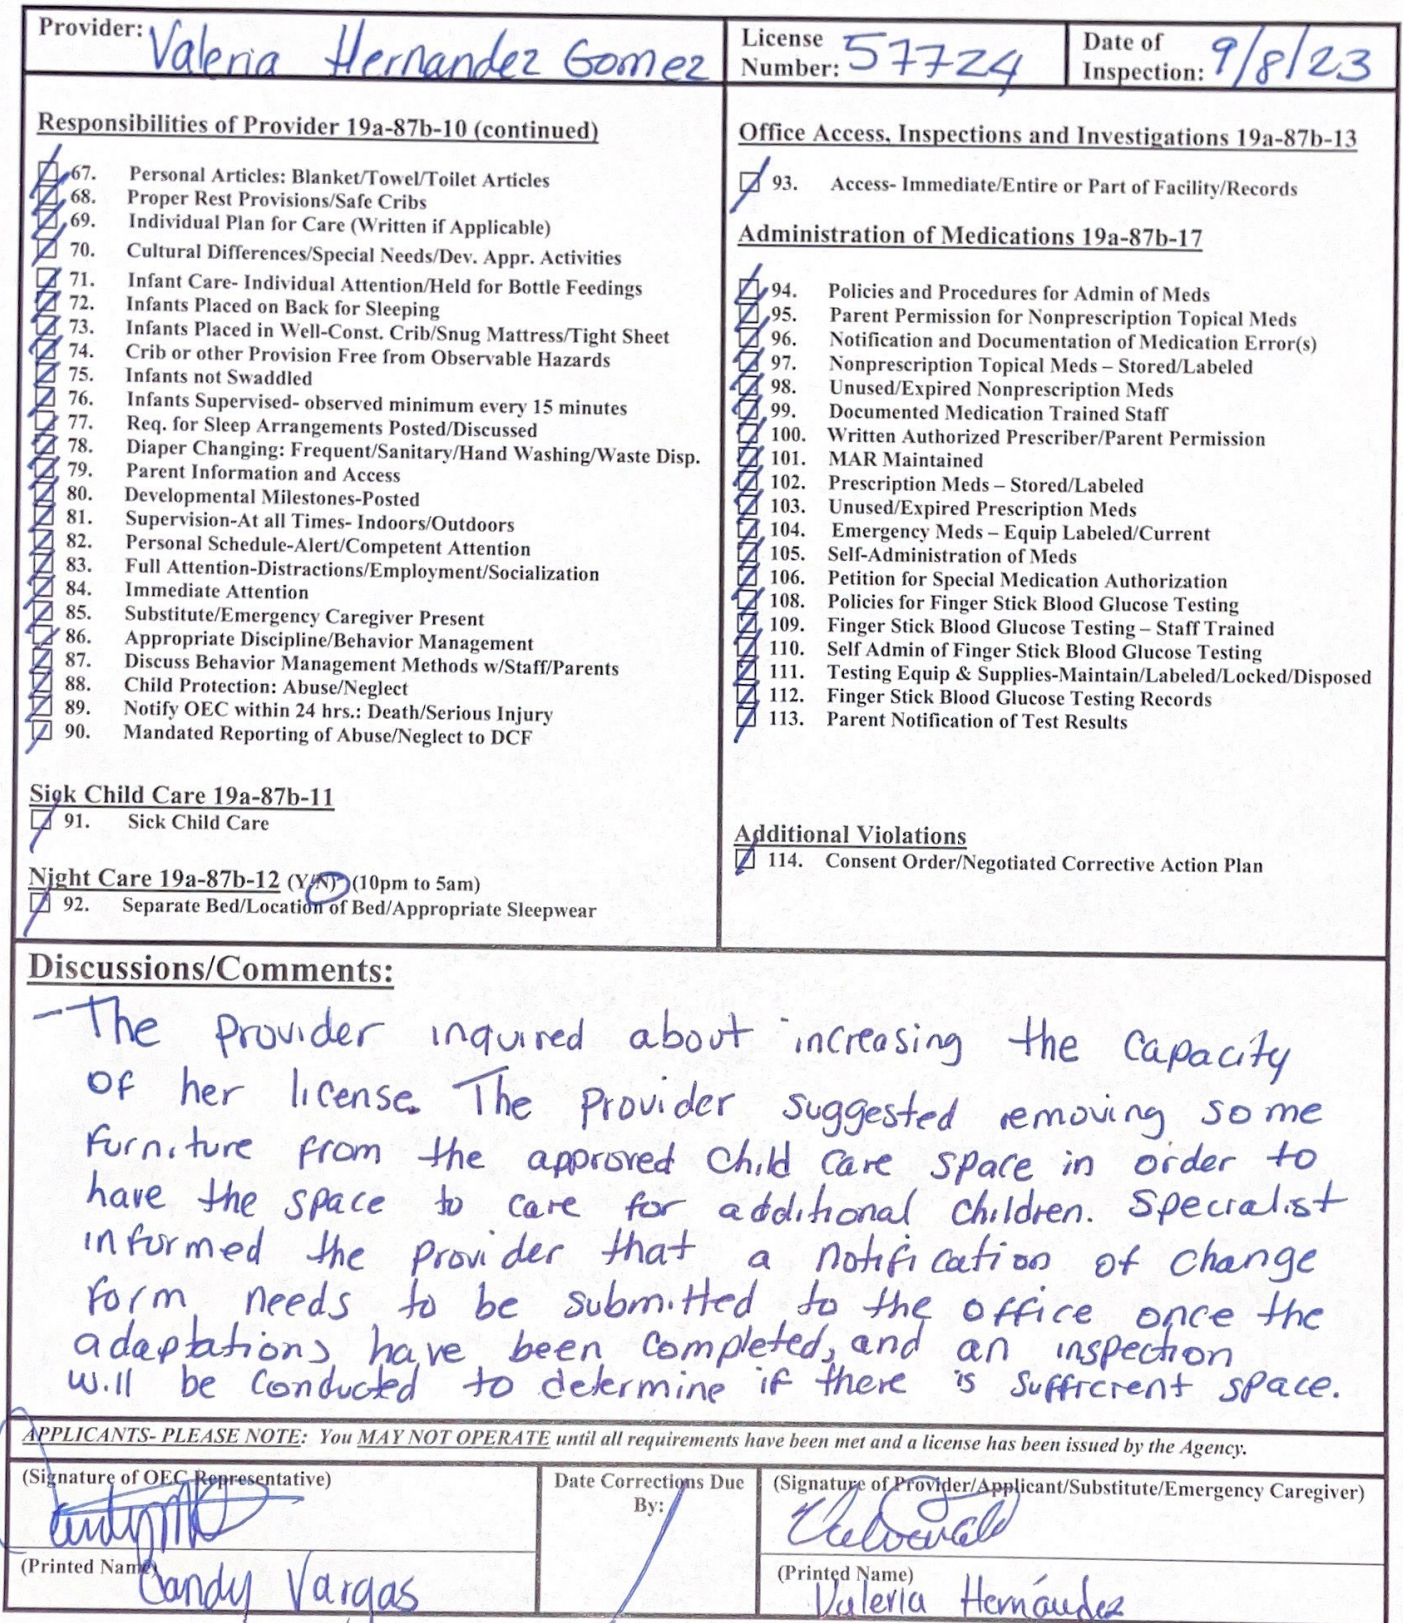 Provider: Valeria Hernandez Gomez
License Number: 57724
Date of Inspection: 9/8/23
Responsibilities of Provider 19a-87b-10 (continued)
67. Personal Articles: Blanket/Towel/Toilet Articles
68. Proper Rest Provisions/Safe Cribs
69. Individual Plan for Care (Written if Applicable)
70. Cultural Differences/Special Needs/Dev. Appr. Activities
71. Infant Care- Individual Attention/Held for Bottle Feedings
72. Infants Placed on Back for Sleeping
73. Infants Placed in Well-Const. Crib/Snug Mattress/Tight Sheet
74. Crib or other Provision Free from Observable Hazards
75. Infants not Swaddled
76. Infants Supervised- observed minimum every 15 minutes
77. Req. for Sleep Arrangements Posted/Discussed
78. Diaper Changing: Frequent/Sanitary/Hand Washing/Waste Disp.
79. Parent Information and Access
80. Developmental Milestones-Posted
81. Supervision-At all Times- Indoors/Outdoors
82. Personal Schedule-Alert/Competent Attention
83. Full Attention-Distractions/Employment/Socialization
84. Immediate Attention
85. Substitute/Emergency Caregiver Present
86. Appropriate Discipline/Behavior Management
87. Discuss Behavior Management Methods w/Staff/Parents
88. Child Protection: Abuse/Neglect
89. Notify OEC within 24 hrs.: Death/Serious Injury
90. Mandated Reporting of Abuse/Neglect to DCF
Sick Child Care 19a-87b-11
91. Sick Child Care
Night Care 19a-87b-12 (Y/N) (10pm to 5am)
92. Separate Bed/Location of Bed/Appropriate Sleepwear
Office Access, Inspections and Investigations 19a-87b-13
93. Access- Immediate/Entire or Part of Facility/Records
Administration of Medications 19a-87b-17
94. Policies and Procedures for Admin of Meds
95. Parent Permission for Nonprescription Topical Meds
96. Notification and Documentation of Medication Error(s)
97. Nonprescription Topical Meds – Stored/Labeled
98. Unused/Expired Nonprescription Meds
99. Documented Medication Trained Staff
100. Written Authorized Prescriber/Parent Permission
101. MAR Maintained
102. Prescription Meds – Stored/Labeled
103. Unused/Expired Prescription Meds
104. Emergency Meds – Equip Labeled/Current
105. Self-Administration of Meds
106. Petition for Special Medication Authorization
108. Policies for Finger Stick Blood Glucose Testing
109. Finger Stick Blood Glucose Testing – Staff Trained
110. Self Admin of Finger Stick Blood Glucose Testing
111. Testing Equip & Supplies-Maintain/Labeled/Locked/Disposed
112. Finger Stick Blood Glucose Testing Records
113. Parent Notification of Test Results
Additional Violations
114. Consent Order/Negotiated Corrective Action Plan
Discussions/Comments:
-The provider inquired about increasing the capacity
of her license. The provider suggested removing some
furniture from the approved child care space in order to
have the space to care for additional children. Specialist
informed the provider that a notification of change
form needs to be submitted to the office once the
adaptations have been completed, and an inspection
will be conducted to determine if there is sufficient space.
APPLICANTS- PLEASE NOTE: You MAY NOT OPERATE until all requirements have been met and a license has been issued by the Agency.
(Signature of OEC Representative)
(Printed Name) Candy Vargas
Date Corrections Due
By:
(Signature of Provider/Applicant/Substitute/Emergency Caregiver)
(Printed Name)
Valeria Hernández